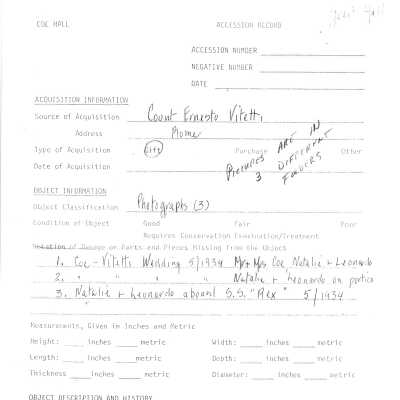 COE HALL
ACCESSION RECORD
ACCESSION NUMBER
NEGATIVE NUMBER
DATE
ACQUISITION INFORMATION
Source of Acquisition Count Ernesto Vitetti
Address Rome
Type of Acquisition Gift Purchase Other
Date of Acquisition
PICTURES ARE IN
3 DIFFERENT
FOLDERS
OBJECT INFORMATION
Object Classification Photographs (3)
Condition of Object Good Fair Poor
Requires Conservation Examination/Treatment
Notation of Damage or Parts and Pieces Missing from the Object
1. Coe - Vitetti Wedding 5/1934 Mr + Mrs Coe, Natalie + Leonardo
2. " " " " Natalie + Leonardo on portico
3. Natalie + Leonardo aboard S.S. "Rex" 5/1934
Measurements, Given in Inches and Metric
Height: inches metric Width: inches metric
Length: inches metric Depth: inches metric
Thickness inches metric Diameter: inches metric
OBJECT DESCRIPTION AND HISTORY